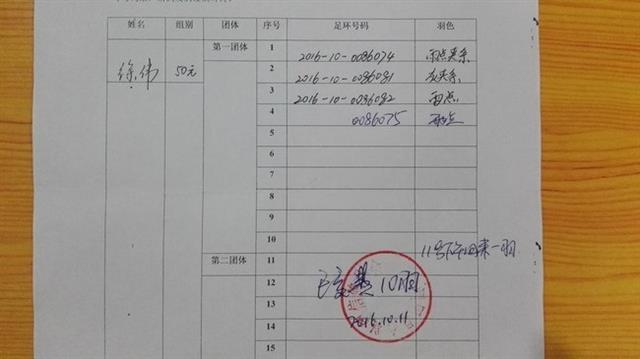 姓名 组别 团体 序号 足环号码 羽色
徐伟 50元 第一团体 1 2016-10-0086074 雨点夹条
2 2016-10-0086081 灰夹条
3 2016-10-0086082 雨点
4 0086075 雨点
5
6
7
8
9
10
11号下午回来一羽
第二团体 11
12
10羽
13
2016.10.11
14
15